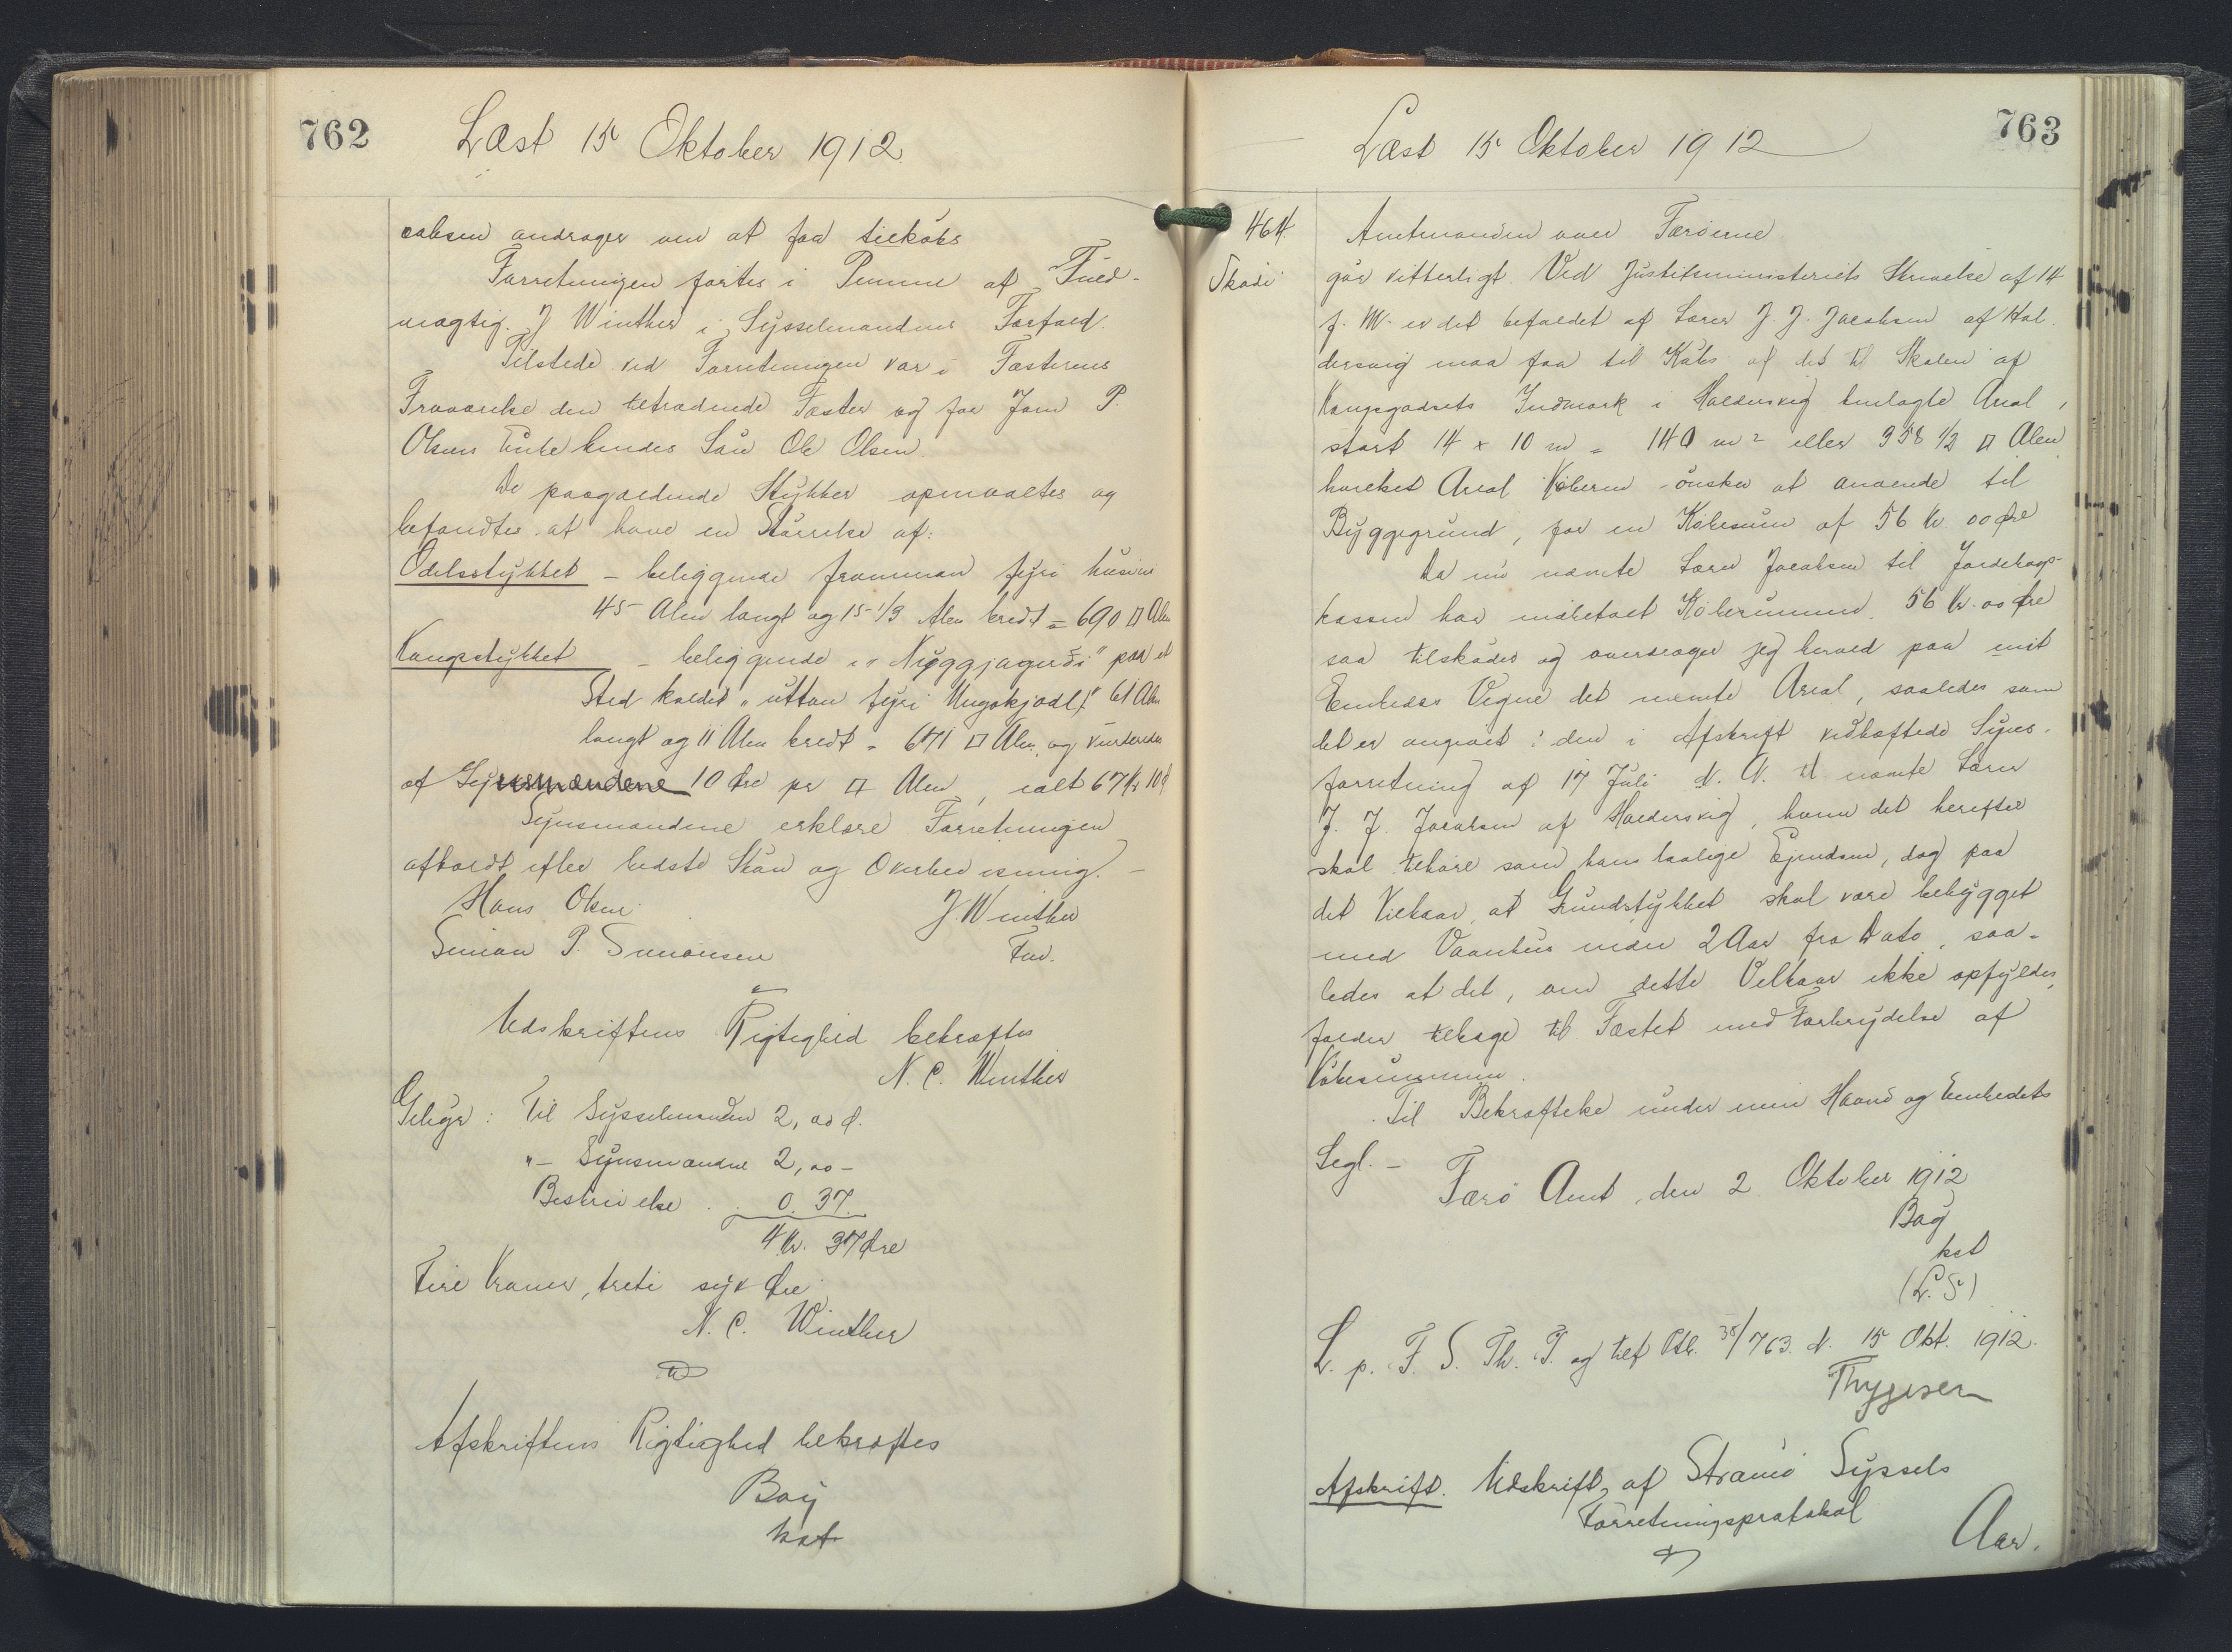 762
Læst 15 Oktober 1912.
cobsen andrager om at faa tilkøbs
Forretningen førtes i Penne af Fuld-
mægtig J Winther i Sysselmandens Forfald.
Tilstede ved Forretningen var i Fæsterens
Fraværelse den tiltrædende Fæster og for Joen P.
Olsens Enke hendes Søn Ole Olsen.
De paagældende Stykker opmaaltes og
befandtes at have en Størrelse af:
Odelsstykket - beliggende framman fyri húsini
45 Alen langt og 15 1/3 Alen bredt = 690 □ Alen
Kongsstykket - beliggende i "Niggjagerði" paa et
Sted kaldet "uttan fyri 61 Alen
langt og 11 Alen bredt = 671 □ Alen, og vurderedes
af Synsmændene 10 Øre pr □ Alen, ialt 67 Kr 10 Ø
Synsmændene erklære Forretningen
afholdt efter bedste Skøn og Overbevisning. -
Hans Olsen J. Winther
Simon P. Simonsen Fm.
Udskriftens Rigtighed bekræftes
N. C. Winther
Gebyr: Til Sysselmanden 2, 00 Ø.
"- Synsmændene 2, 00 -
Beskrivelse . 0. 37.
4 Kr. 37 Øre
Fire Kroner, treti syv Øre
N. C. Winther
Afskriftens Rigtighed bekræftes
Bøy
kst
763
Læst 15 Oktober 1912
464. Amtmanden over Færøerne
Skøde gør vitterligt. Ved Justitsministeriets Skrivelse af 14
f. M. er det bifaldet at Lærer J. J. Jacobsen af Hal-
dersvig maa faa til Købs af det til Skolen af
Kongsgodsets Indmark i Haldersvig henlagte Areal,
stort 14 x 10 m = 140 m² eller 358 1/2 □ Alen
hvilket Areal Køberen ønsker at anvende til
Byggegrund, for en Købesum af 56 Kr. 00 Øre
Da nu nævnte Lærer Jacobsen til Jordebogs-
kassen har indbetalt Købesummen 56 Kr. 00 Øre
saa tilskøder og overdrager jeg herved paa mit
Embedes Vegne det nævnte Areal, saaledes som
det er angivet i den i Afskrift vedhæftede Syns-
forretning af 17 Juli d. A. til nævnte Lærer
J. J. Jacobsen af Haldersvig, hvem det herefter
skal tilhøre som hans lovlige Ejendom, dog paa
det Vilkaar, at Grundstykket skal være bebygget
med Vaanhus inden 2 Aar fra Dato, saa-
ledes at det, om dette Vilkaar ikke opfyldes,
falder tilbage til Fæstet med Forbrydelse af
Købesummen.
Til Bekræftelse under min Haand og Embedets
Segl. -
Færø Amt, den 2 Oktober 1912
Bøy
kst
(L. S.)
L. p. F. S. Th. T. og tilf Ptk. 35/763. d. 15 Okt. 1912.
Thygesen
Afskrift. Udskrift af Strømø Syssels
Forretningsprotokol
Aar.